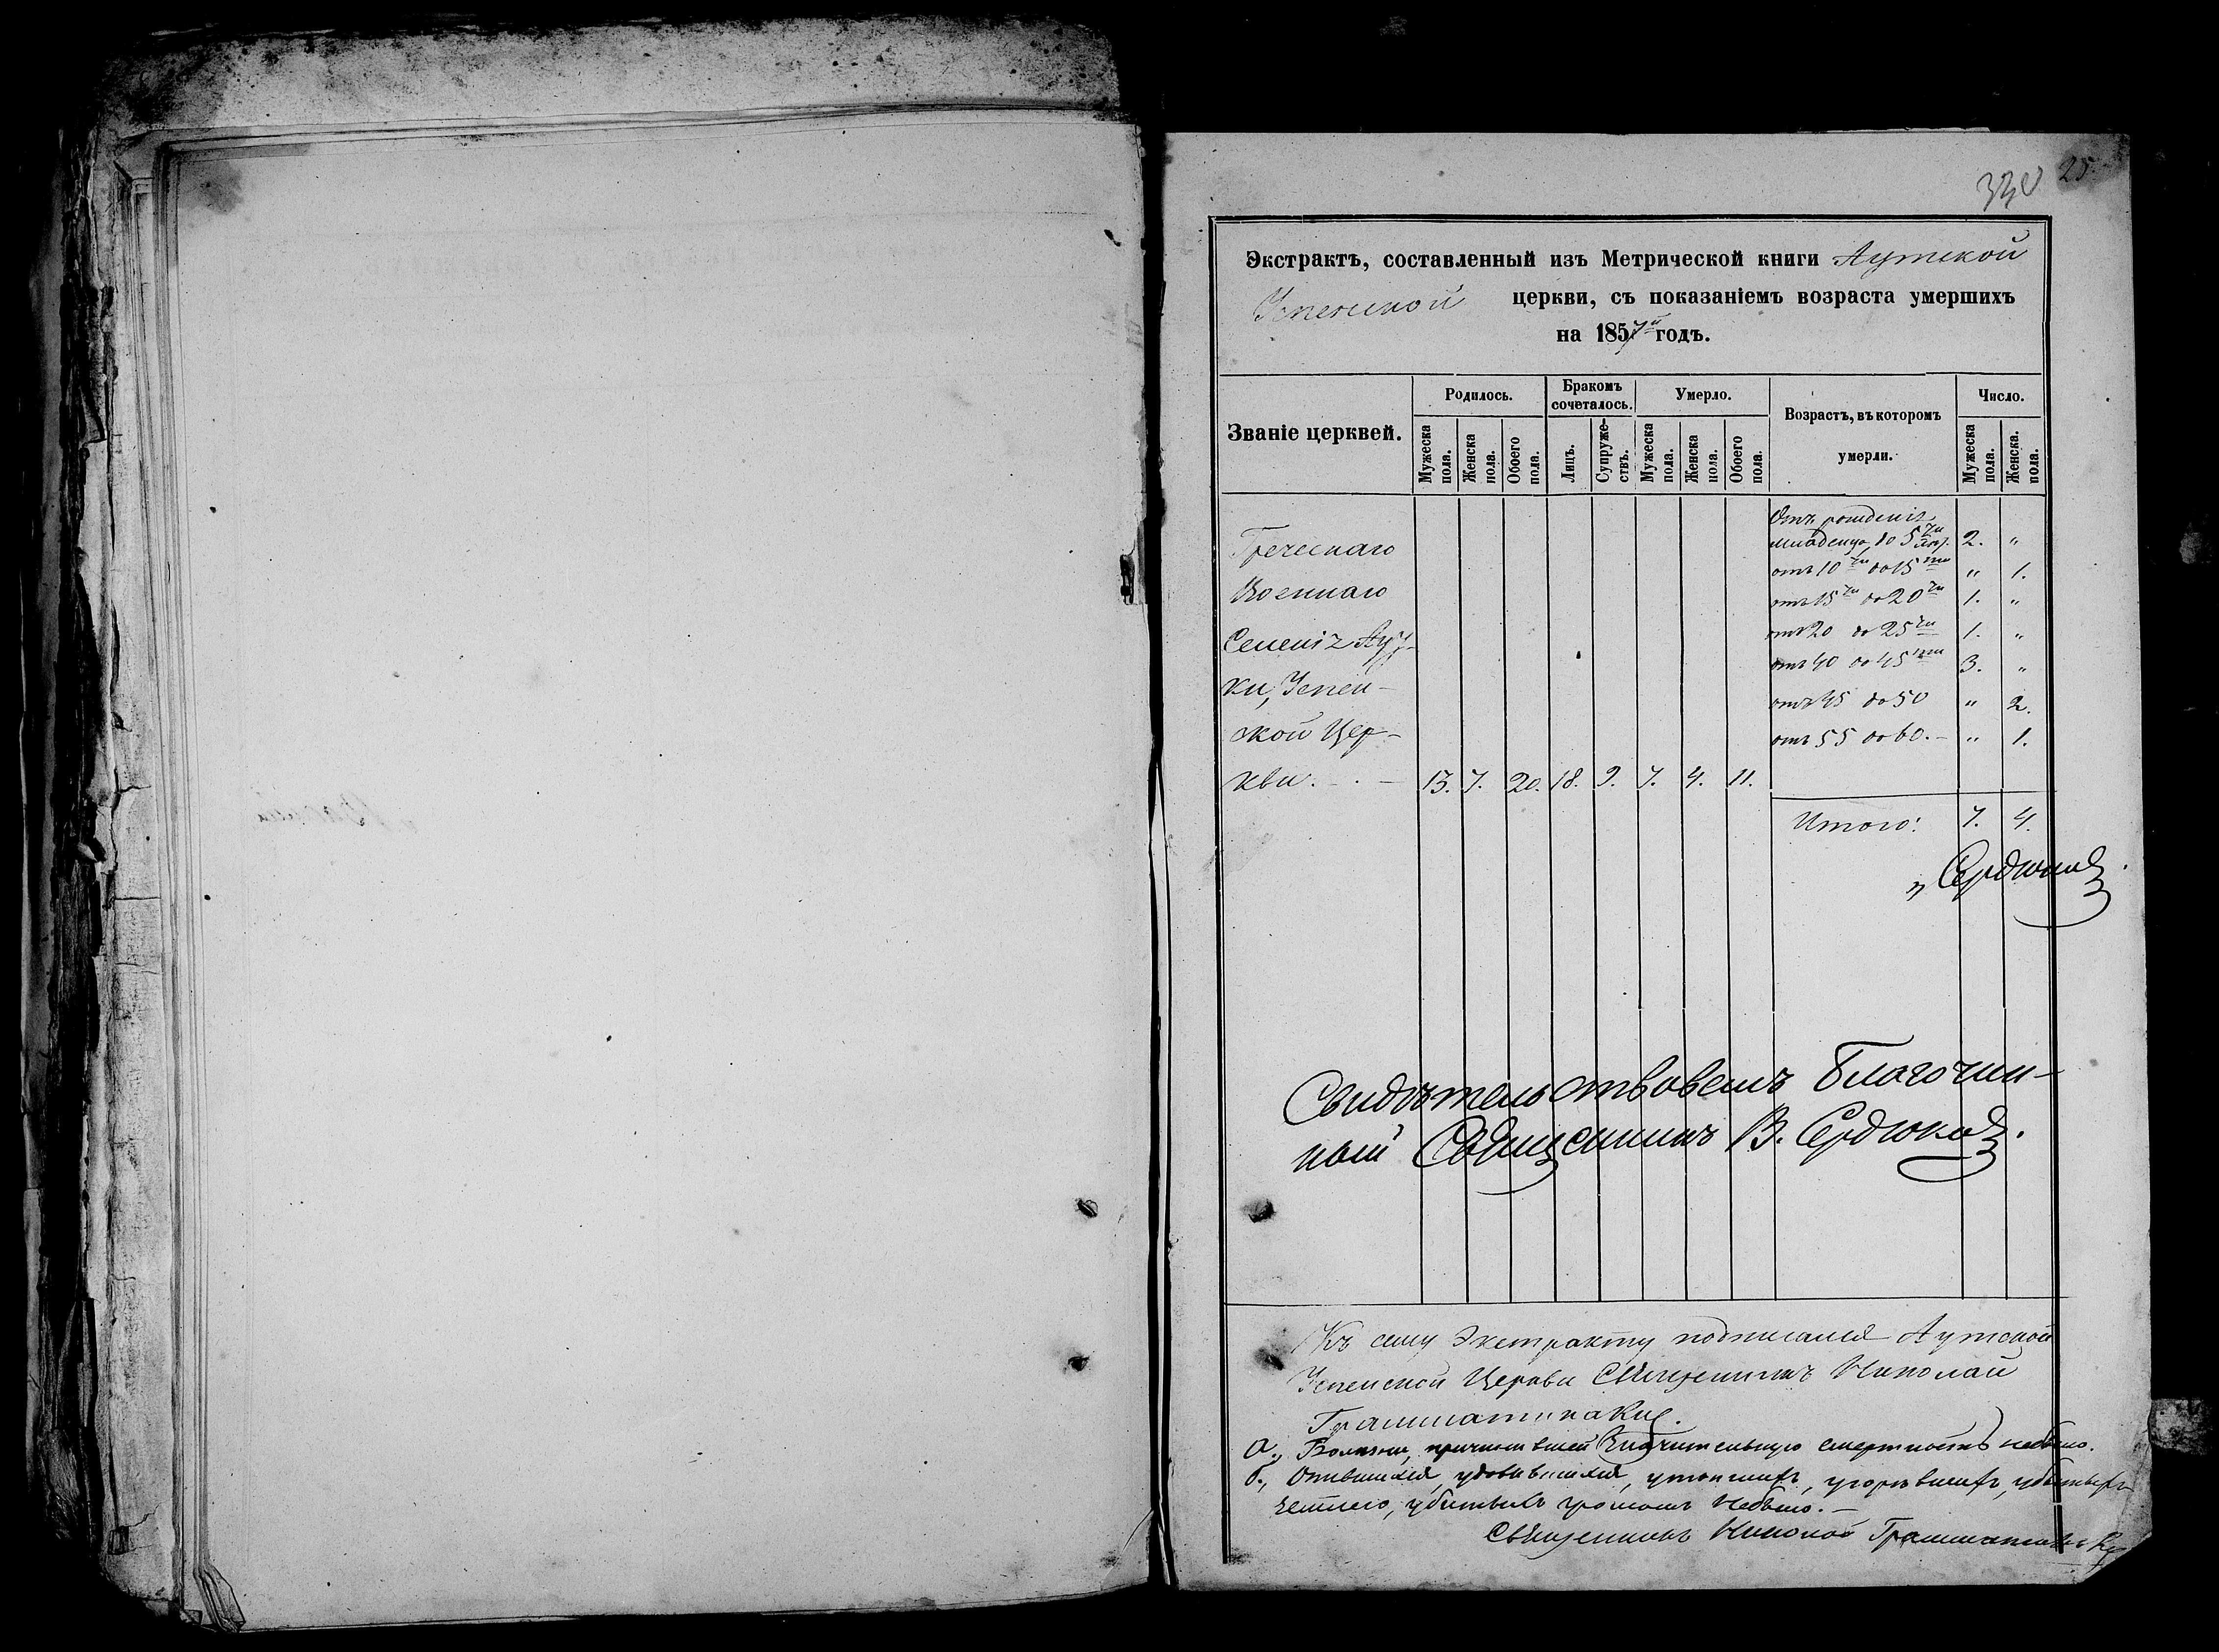 330 25.
Экстрактъ, составленный изъ Метрической книги Аутской
Успенской церкви, съ показаніемъ возраста умершихъ
на 1857й годъ.
Званіе церквей.
Родилось.
Бракомъ сочеталось.
Умерло.
Возрастъ, въ которомъ умерли.
Число.
Мужеска пола.
Женска пола.
Обоего пола.
Лицъ.
Супружествъ.
Мужеска пола.
Женска пола.
Обоего пола.
Мужеска пола.
Женска. пола.
Греческаго
Военнаго
Селенія Аут-
ки, Успен-
ской Цер-
кви. - 13. 7. 20. 18. 9. 7. 4. 11.
Отъ рожденія
младенца до 5ти 2. "
отъ 10ти до 15ти " 1.
отъ 15ти до 20ти 1. "
отъ 20 до 25ти 1. "
отъ 40 до 45ти 3. "
отъ 45 до 50 " 2.
отъ 55 до 60. - " 1.
Итого: 7. 4.
Сердюковъ
Свидѣтельствовалъ Благочин-
ный Священникъ В. Сердюковъ.
Къ сему Экстракту подписался Аутской
Успенской Церкви Священникъ Николай
Грамматикаки.
а., Болѣзни, причинившей значительную смертность небыло.
б., Опившихся, удавившихся, утопшихъ, угорѣвшихъ, убитыхъ
убитыхъ громомъ небыло. -
Священникъ Николай